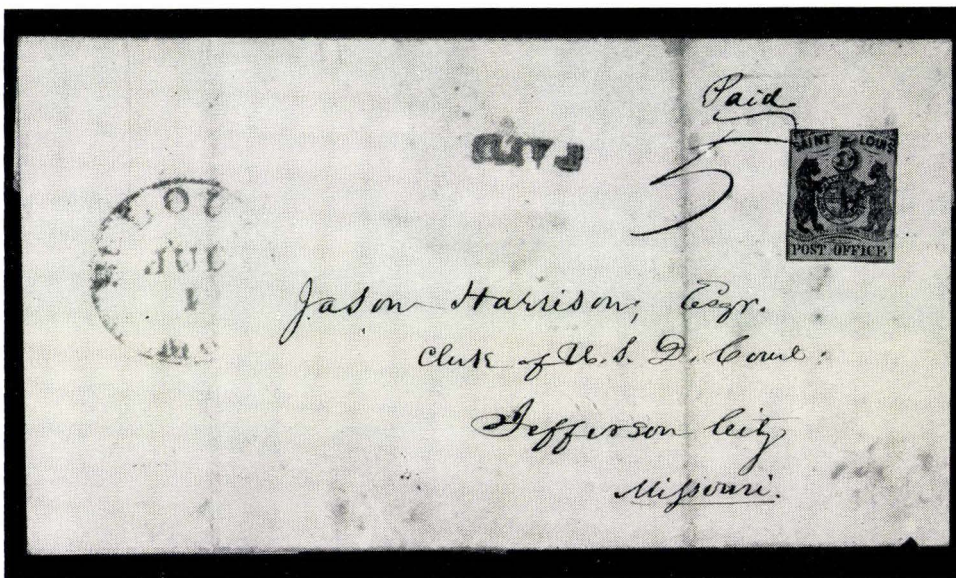 Paid
5
PAID
SAINT LOUIS
5
POST OFFICE
JUL
1
Jason Harrison, Esqr.
Clerk of U. S. D. Court.
Jefferson City
Missouri.